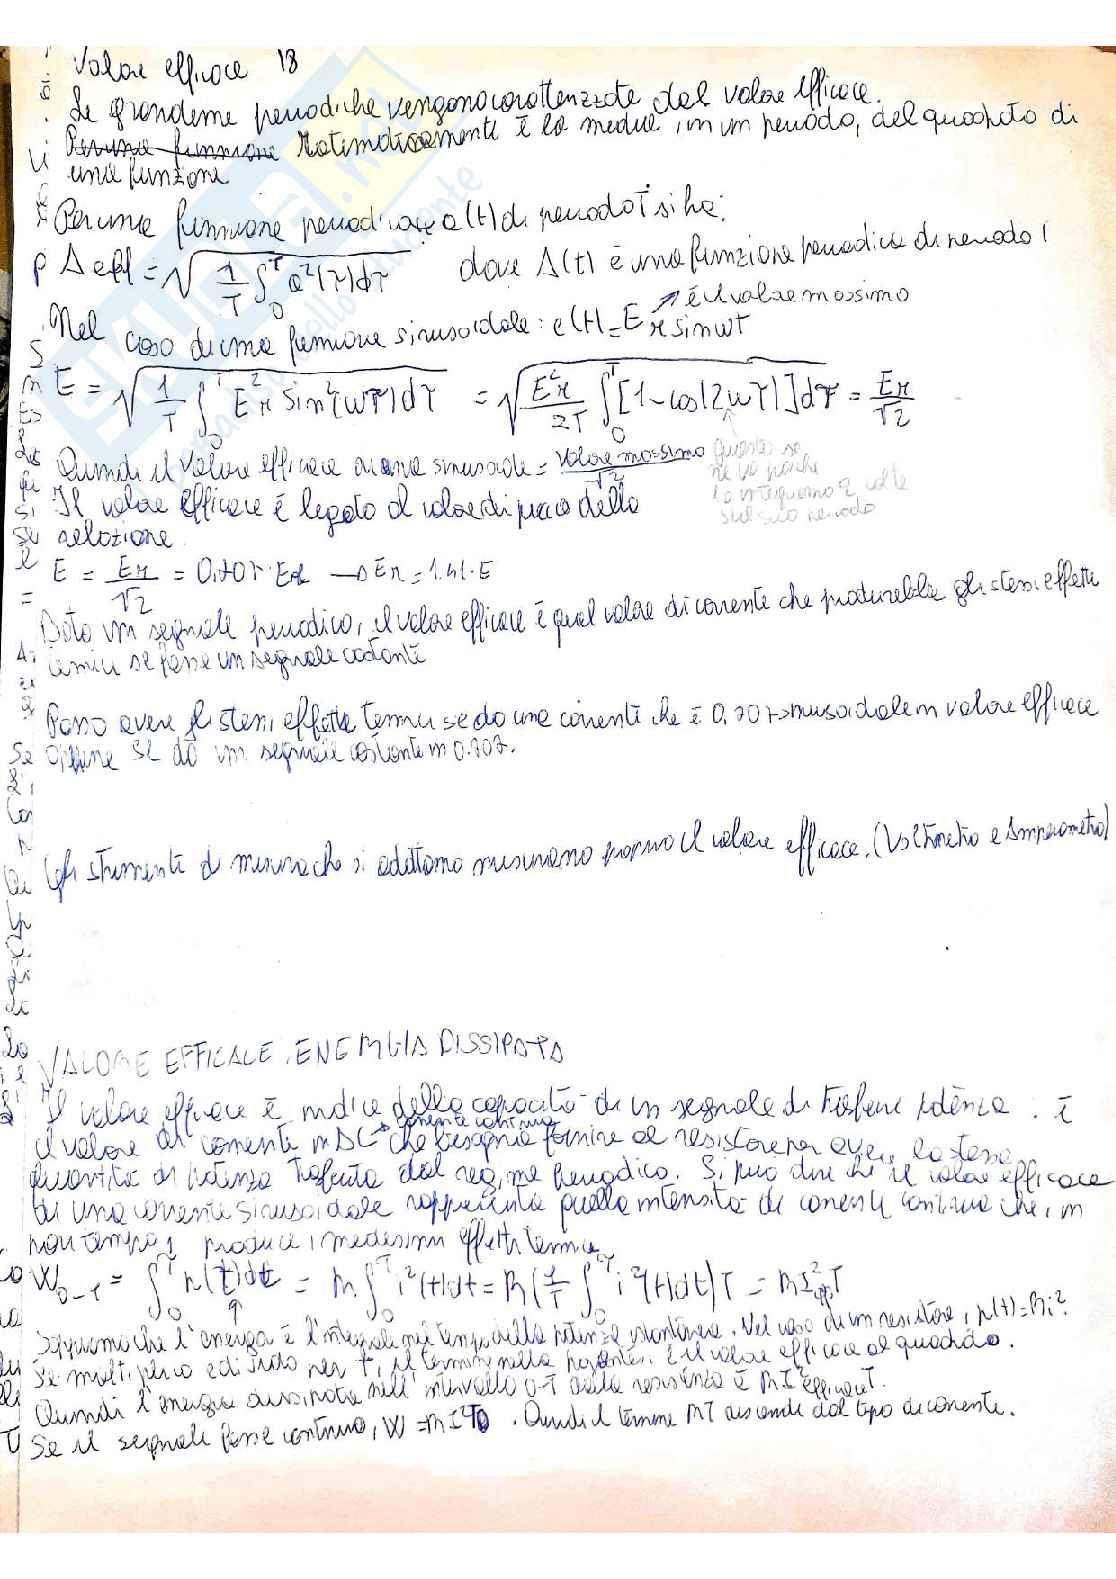 Valore efficace 18
Le grandezze periodiche vengono caratterizzate dal valore efficace.
Per una funzione Matematicamente è la media, in un periodo, del quadrato di
una funzione
Per una funzione periodica a(t) di periodo T si ha:
A eff = √(1/T ∫₀ᵀ a²(τ)dτ) dove A(t) è una funzione periodica di periodo T
è il valore massimo
Nel caso di una funzione sinusoidale: e(t) = E_M sin ωt
E = √(1/T ∫₀ᵀ E²_M sin²(ωτ)dτ) = √(E²_M/2T ∫₀ᵀ [1-cos(2ωτ)]dτ) = E_M/√2
Quindi il valore efficace di una sinusoide = valore massimo/√2
Questo se
ne va perché
lo integriamo 2 volte
sul suo periodo
Il valore efficace è legato al valore di picco dalla
relazione
E = E_M/√2 = 0,707·E_M → E_M = 1.41·E
Dato un segnale periodico, il valore efficace è quel valore di corrente che produrrebbe gli stessi effetti
termici se fosse un segnale costante
Posso avere gli stessi effetti termici se do una corrente che è 0,707 sinusoidale in valore efficace
oppure se do un segnale costante in 0.707.
Gli strumenti di misura che si adottano misurano proprio il valore efficace. (Voltmetro e Amperometro)
VALORE EFFICACE. ENERGIA DISSIPATA
Il valore efficace è indice della capacità di un segnale di trasferire potenza: è
corrente continua
il valore di corrente in DC che bisogna fornire al resistore per avere la stessa
quantità di potenza trasferita dal regime periodico. Si può dire che il valore efficace
di una corrente sinusoidale rappresenta quella intensità di corrente continua che, in
pari tempo, produce i medesimi effetti termici
W₀₋T = ∫₀ᵀ p(t)dt = R∫₀ᵀ i²(t)dt = R(1/T ∫₀ᵀ i²(t)dt)T = RI²eff T
Sappiamo che l'energia è l'integrale nel tempo della potenza istantanea. Nel caso di un resistore, p(t)=Ri².
Se moltiplico e divido per T, il termine nella parentesi è il valore efficace al quadrato.
Quindi l'energia dissipata nell'intervallo 0-T dalla resistenza è RI²efficace T.
Se il segnale fosse continuo, W = RI²T. Quindi il termine RT discende dal tipo di corrente.